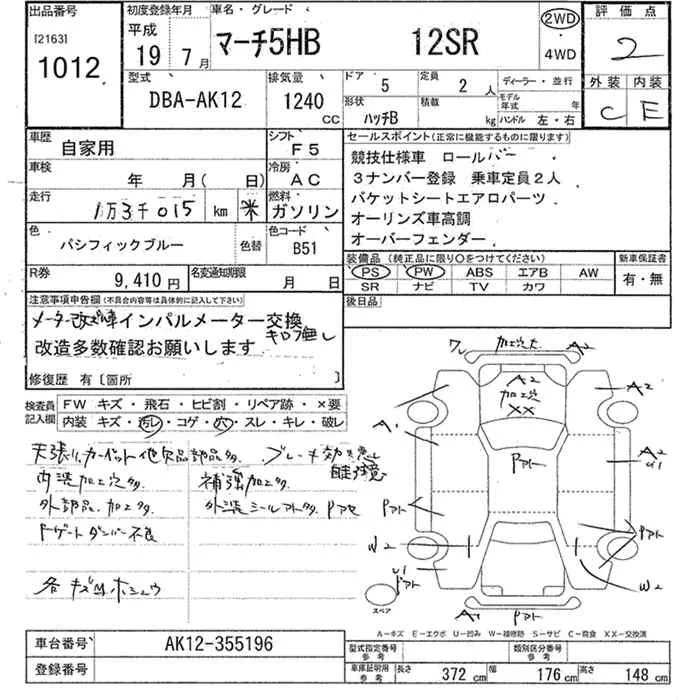 出品番号
[2163]
1012
初度登録年月
平成
19年 7月
車名・グレード
マーチ5HB 12SR
2WD
・
4WD
評価点
2
外装 内装
C E
型式
DBA-AK12
排気量
1240
CC
ドア
5
定員
2人
形状
ハッチB
積載
kg
ディーラー・並行
モデル
年式 年
ハンドル 左・右
車歴
自家用
シフト
F5
車検
年 月( 日)
冷房
AC
走行
1万3千015 km 米
燃料
ガソリン
色
パシフィックブルー
色替
色コード
B51
R券
9,410円
名変通知期限
月 日
セールスポイント(正常に機能するものに限ります)
競技仕様車 ロールバー ・
3ナンバー登録 乗車定員2人
バケットシートエアロパーツ
オーリンズ車高調
オーバーフェンダー
装備品(純正品に限り○をつけてください)
PS PW ABS エアB AW
SR ナビ TV カワ
新車保証書
有・無
後日品
注意事項申告欄(不具合内容等は具体的に記入して下さい)
メーター改ざん車インパルメーター交換
キロ不無し
改造多数確認お願いします
修復歴 有〔箇所 〕
検査員
記入欄
FW キズ・飛石・ヒビ割・リペア跡・×要
内装 キズ・汚レ・コゲ・穴・スレ・キレ・破レ
天張り、カーペット他欠品部品多. ブレーキ効き悪し
内装加工穴多 補強加工多.
外部品. 加工多. 外装シールアト多. Pアセ
Fゲートダンパー不良
各キズ凹ホシュウ
ワレ 加工穴大 A2
A2
加工穴
XX
A2
A1
Pアト
A2
U1
Pアト
Pアト
W2
W2
U1
Pアト
スペア
A1 Pアト
A-キズ E-エクボ U-凹み W-補修跡 S-サビ C-腐食 XX-交換済
車台番号 AK12-355196
登録番号
型式指定番号
参考
類別区分番号
参考
車庫証明用
参考
長さ 372cm 幅 176cm 高さ 148cm